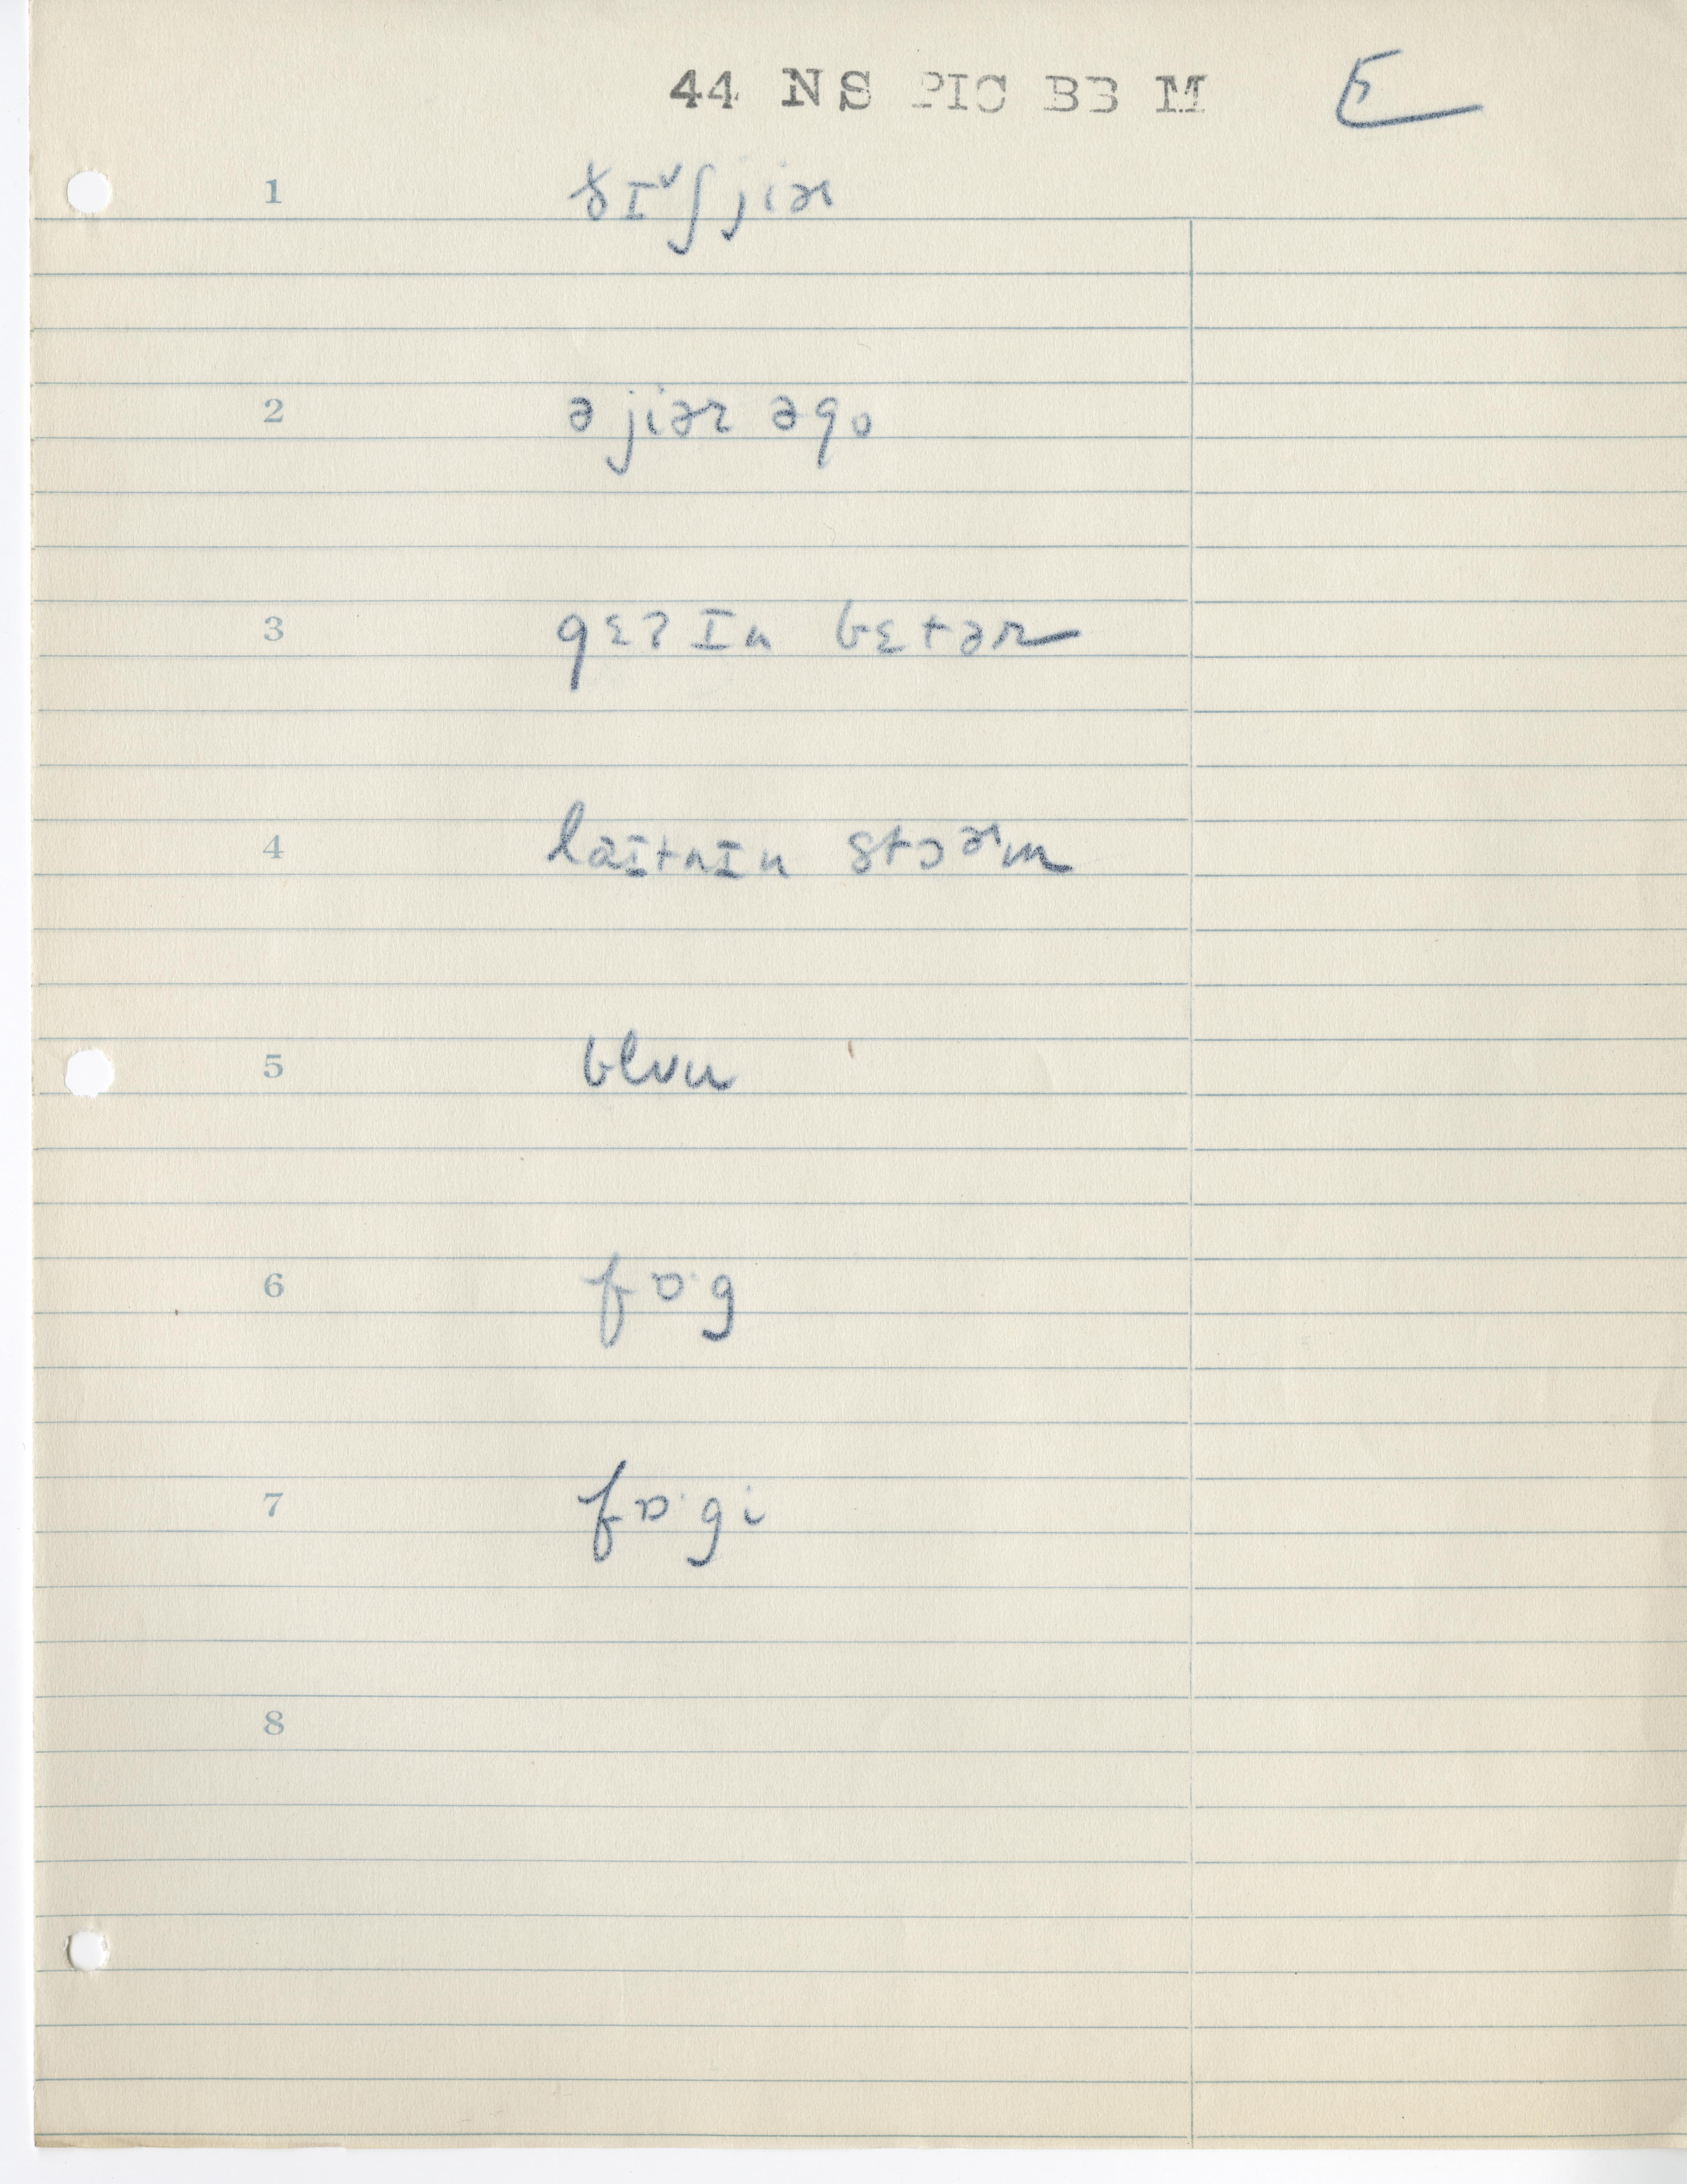 44 NS PIC BB M E
1 ðɪˇʃjiɚ
2 ə jiər əgo
3 gɛʔɪn bɛtər
4 laɪtnɪn stɔɚm
5
6 fɒ·g
7 fɒ·gi
8